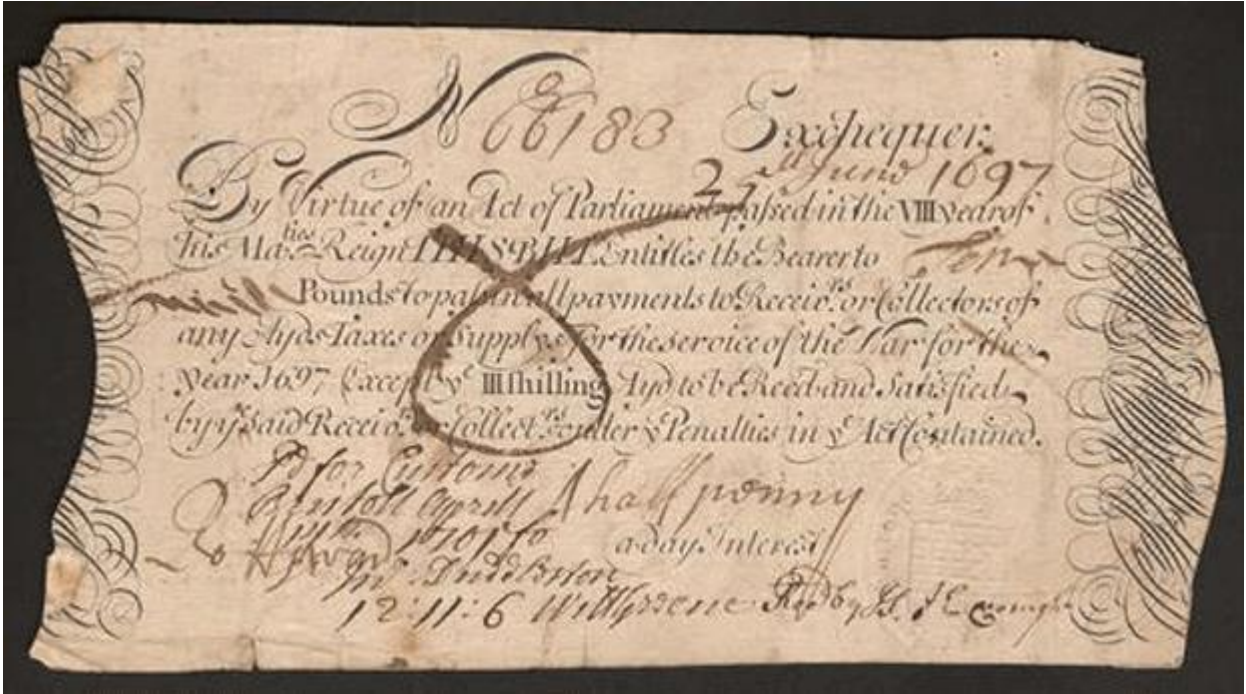 No 66183 Exchequer.
2 June 1697
By Virtue of an Act of Parliament passed in the VIII year of
his Maties Reign THIS BILL Entitles the Bearer to Ten
Pounds to pass in all payments to Receivrs or Collectors of
any Ayds Taxes or Supplys for the service of the War for the
year 1697 Except ye III shilling Ayd to be Reced and Satisfied
by ye said Receivrs or Collectrs under ye Penalties in ye Act Contained.
Pd for Customs
Aprill A half penny
1701 a day Interest
Mr
12:11:6 Will by